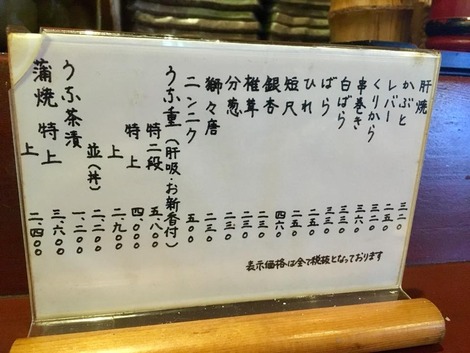 肝焼 三二〇
かぶと 二五〇
レバー 三三〇
くりから 三六〇
串巻き 三三〇
白ばら 三三〇
ばら 二五〇
ひれ 二五〇
短尺 四六〇
銀杏 二三〇
椎茸 二三〇
分葱 二三〇
獅々唐 二三〇
ニンニク 五〇〇
うな重(肝吸・お新香付)
特二段 五、八〇〇
特上 四、〇〇〇
上 二、九〇〇
並(丼) 二、二〇〇
うな茶漬 一、二〇〇
蒲焼 特上 三、六〇〇
上 二、四〇〇
表示価格は全て税抜となっております